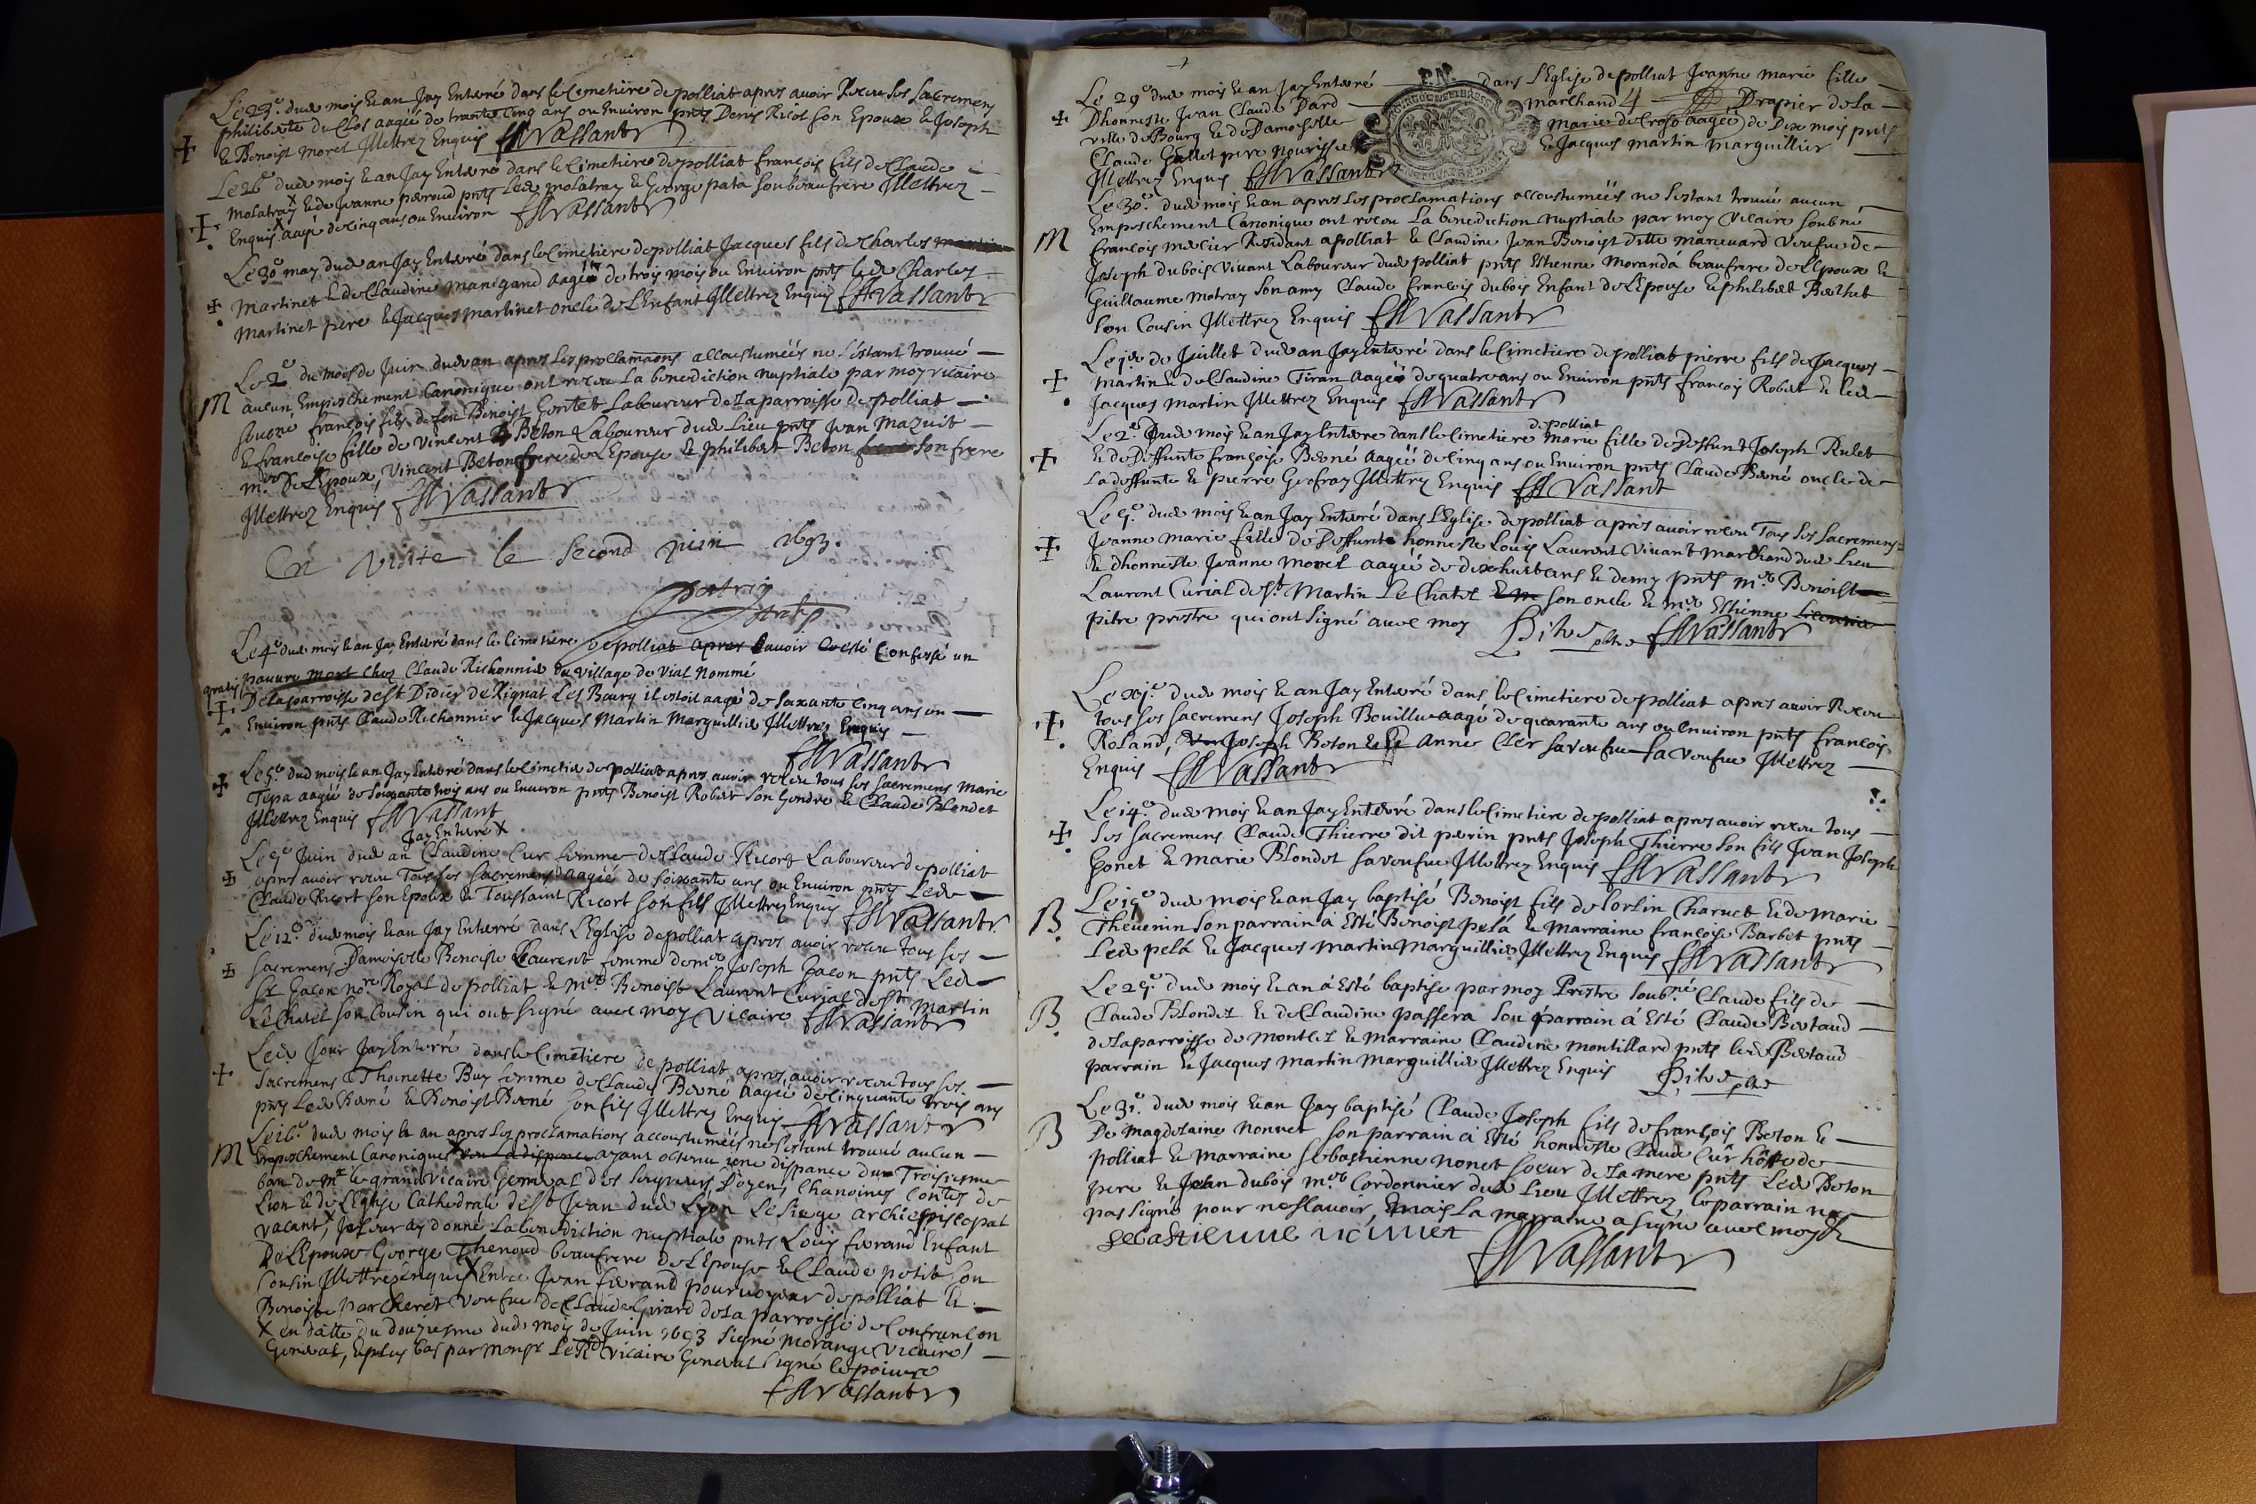 Le 23e dud mois & an Jay Enterré dans le Cimetiere de polliat apres avoir Receu ses Sacremens
philiberte du Clos aagée de trante Cinq ans ou Environ pnts Denis Ricol son Epoux & Joseph
& Benoist Morel Illettrez Enquis Vassant
Le 26e dud mois & an Jay Enterré dans le Cimetiere de polliat françois fils de Claude
molatray & de Jeanne peroud pnts led molatray & George pata son beaufrere Illettrez
Enquis aagé de Cinq ans ou Environ Vassant
Le 30e may dud an Jay Enterré dans le Cimetiere de polliat Jacques fils de Charles
martinet & de Claudine manigand aagé de trois mois ou Environ pnts led Charles
martinet pere & Jacques martinet oncle de L'Enfant Illettrez Enquis Vassant
Le 2e du mois de Juin dud an apres les proclamaons accoustumées ne s'estant trouvé
M aucun Empeschement Canonique ont receu La benediction nuptiale par moy vicaire
françois fils de feu Benoist Gontet Laboureur de la parroisse de polliat
& francoise fille de Vincent Beton Laboureur dud Lieu pnts Jean Mazuit
de L'Epoux, Vincent Beton frere de L'Epouse & philibert Beton son frere
Illettrez Enquis Vassant
En visite le second juin 1693.
Le 4e dud mois & an Jay Enterré dans le Cimetiere de polliat apres avoir esté Confessé un
pauvre mort chez Claude Richonnier du village de Vial nommé
gratis De la parroisse de St Didier de Rignat Les Bourg il estoit aagé de soixante cinq ans ou
Environ pnts Claude Richonnier & Jacques Martin Marguillier Illettrez Enquis
Vassant
Le 5e dud mois & an Jay Enterré dans le Cimetiere de polliat apres avoir receu tous ses sacremens Marie
Tepa aagée de soixante trois ans ou Environ pnts Benoist Robert son Gendre & Claude Blondet
Illettrez Enquis Vassant
Jay Enterré
Juin dud an Claudine Cur femme de Claude Ricort Laboureur de polliat
apres avoir receu Tous ses sacremens aagée de soixante ans ou Environ pnts Led
Claude Ricort son Epoux & Toussaint Ricort son fils Illettrez Enquis Vassant
Le 12e dud mois & an Jay Enterré dans L'Eglise de polliat apres avoir receu tous ses
sacremens Damoiselle Benoiste Laurent femme de me Joseph Gacon pnts Led
Sr Gacon nore Royal de polliat & mre Benoist Laurent Curial de St Martin
Le Chatel son Cousin qui ont signé avec moy Vicaire Vassant
Led Jour Jay Enterré dans le Cimetiere de polliat apres avoir receu tous ses
sacremens Thoinette Buy femme de Claude Berné aagée de Cinquante trois ans
pnts Led Berné & Benoist Berné son fils Illettrez Enquis Vassant
Le 16e dud mois & an apres les proclamations accoustumées ne s'estant trouvé aucun
M Empeschement Canonique ayant obtenu une dispance du Troisiesme
ban de Mr le grand Vicaire General des seigneurs Doyens Chanoines Contes de
Lion & de L'Eglise Cathedrale de St Jean dud Lyon Le siege archiepiscopal
vacant, Je leur ay donné La benediction nuptiale pnts Louis fierand Enfant
De L'Epoux George Thenoud beaufrere de L'Epouse & Claude petit son
Cousin Illettrez Enquis Entre Jean fierand pourvoyeur de polliat &
Benoiste Marcheret veufve de Claude Girard de la parroisse de Confrançon
X en datte du douziesme dud mois de Juin 1693 signé morange Vicaire
General, & plus bas par Monsr Le Grd Vicaire General signé lepoivre
Vassant
Le 29e dud mois & an Jay Enterré dans L'Eglise de polliat Jeanne Marie fille
Dhonneste Jean Claude Dard Marchand Drapier de la
ville de Bourg & de Damoiselle Marie de Croso aagée de Dix mois pnts
Claude Gallet pere nourissier & Jacques Martin Marguillier
Illettrez Enquis Vassant
Le 30e dud mois & an apres les proclamations accoustumées ne s'estant trouvé aucun
Empeschement Canonique ont receu La benediction nuptiale par moy Vicaire soubné
M françois mercier Residant a polliat & Claudine Jean Benoist ditte marevard veufve de
Joseph dubois vivant Laboureur dud polliat pnts Estienne Moranda beaufrere de L'Epoux &
Guillaume Motray son amy Claude françois dubois Enfant de L'Epouse & philibert Berthet
son Cousin Illettrez Enquis Vassant
Le 1er de Juillet dud an Jay Enterré dans le Cimetiere de polliat pierre fils de Jacques
Martin & de Claudine Tiran aagé de quatre ans ou Environ pnts françois Robert & led
Jacques Martin Illettrez Enquis Vassant
de polliat
Le 2e Dud mois & an Jay Enterré dans le Cimetiere Marie fille de deffunt Joseph Rulet
& de deffunte françoise Berné aagée de Cinq ans ou Environ pnts Claude Berné oncle de
La deffunte & pierre Geofray Illettrez Enquis Vassant
Le 5e dud mois & an Jay Enterré dans L'Eglise de polliat apres avoir receu Tous ses Sacremens
Jeanne Marie fille de deffunt honneste Louis Laurent Vivant Marchand dud Lieu
& dhonneste Jeanne Morel aagée de dixhuit ans & demy pnts mre Benoist
Laurent Curial de St Martin Le Chatel son oncle & mre Estienne
pitre prestre qui ont signé avec moy Pitre pbre Vassant
Le xie dud mois & an Jay Enterré dans le Cimetiere de polliat apres avoir Receu
tous ses sacremens Joseph Bouilleu aagé de quarante ans ou Environ pnts françois
Roland, Joseph Beton & Anne Cler sa veufve Illettrez
Enquis Vassant
Le 14e dud mois & an Jay Enterré dans le Cimetiere de polliat apres avoir receu tous
ses sacremens Claude Thierre dit perin pnts Joseph Thierre son fils Jean Joseph
Gonet & Marie Blondet sa veufve Illettrez Enquis Vassant
Le 19e dud mois & an Jay baptisé Benoist fils de Corlin Charvet & de Marie
B. Thevenin son parrain a Esté Benoist pela & Marraine françoise Barbet pnts
Led pela & Jacques Martin Marguillier Illettrez Enquis Vassant
Le 29e dud mois & an a Esté baptisé par moy Prestre soubné Claude fils de
B. Claude Blondet & de Claudine passera son parrain a Esté Claude Bertaud
de la parroisse de Montcet & Marraine Claudine Montillard pnts led Bertaud
parrain & Jacques Martin Marguillier Illettrez Enquis Pitre pbre
Le 31e dud mois & an Jay baptisé Claude Joseph fils de françois Beton &
B De Magdelaine nonnet son parrain a Esté honneste Claude Cur hôste de
polliat & Marraine sebastienne nonet soeur de la mere pnts Led Beton
pere & Jean dubois me Cordonnier dud Lieu Illettrez le parrain n'a
pas signé pour ne scavoir, mais La marraine a signé avec moy
sebastienne nonnet
Vassant